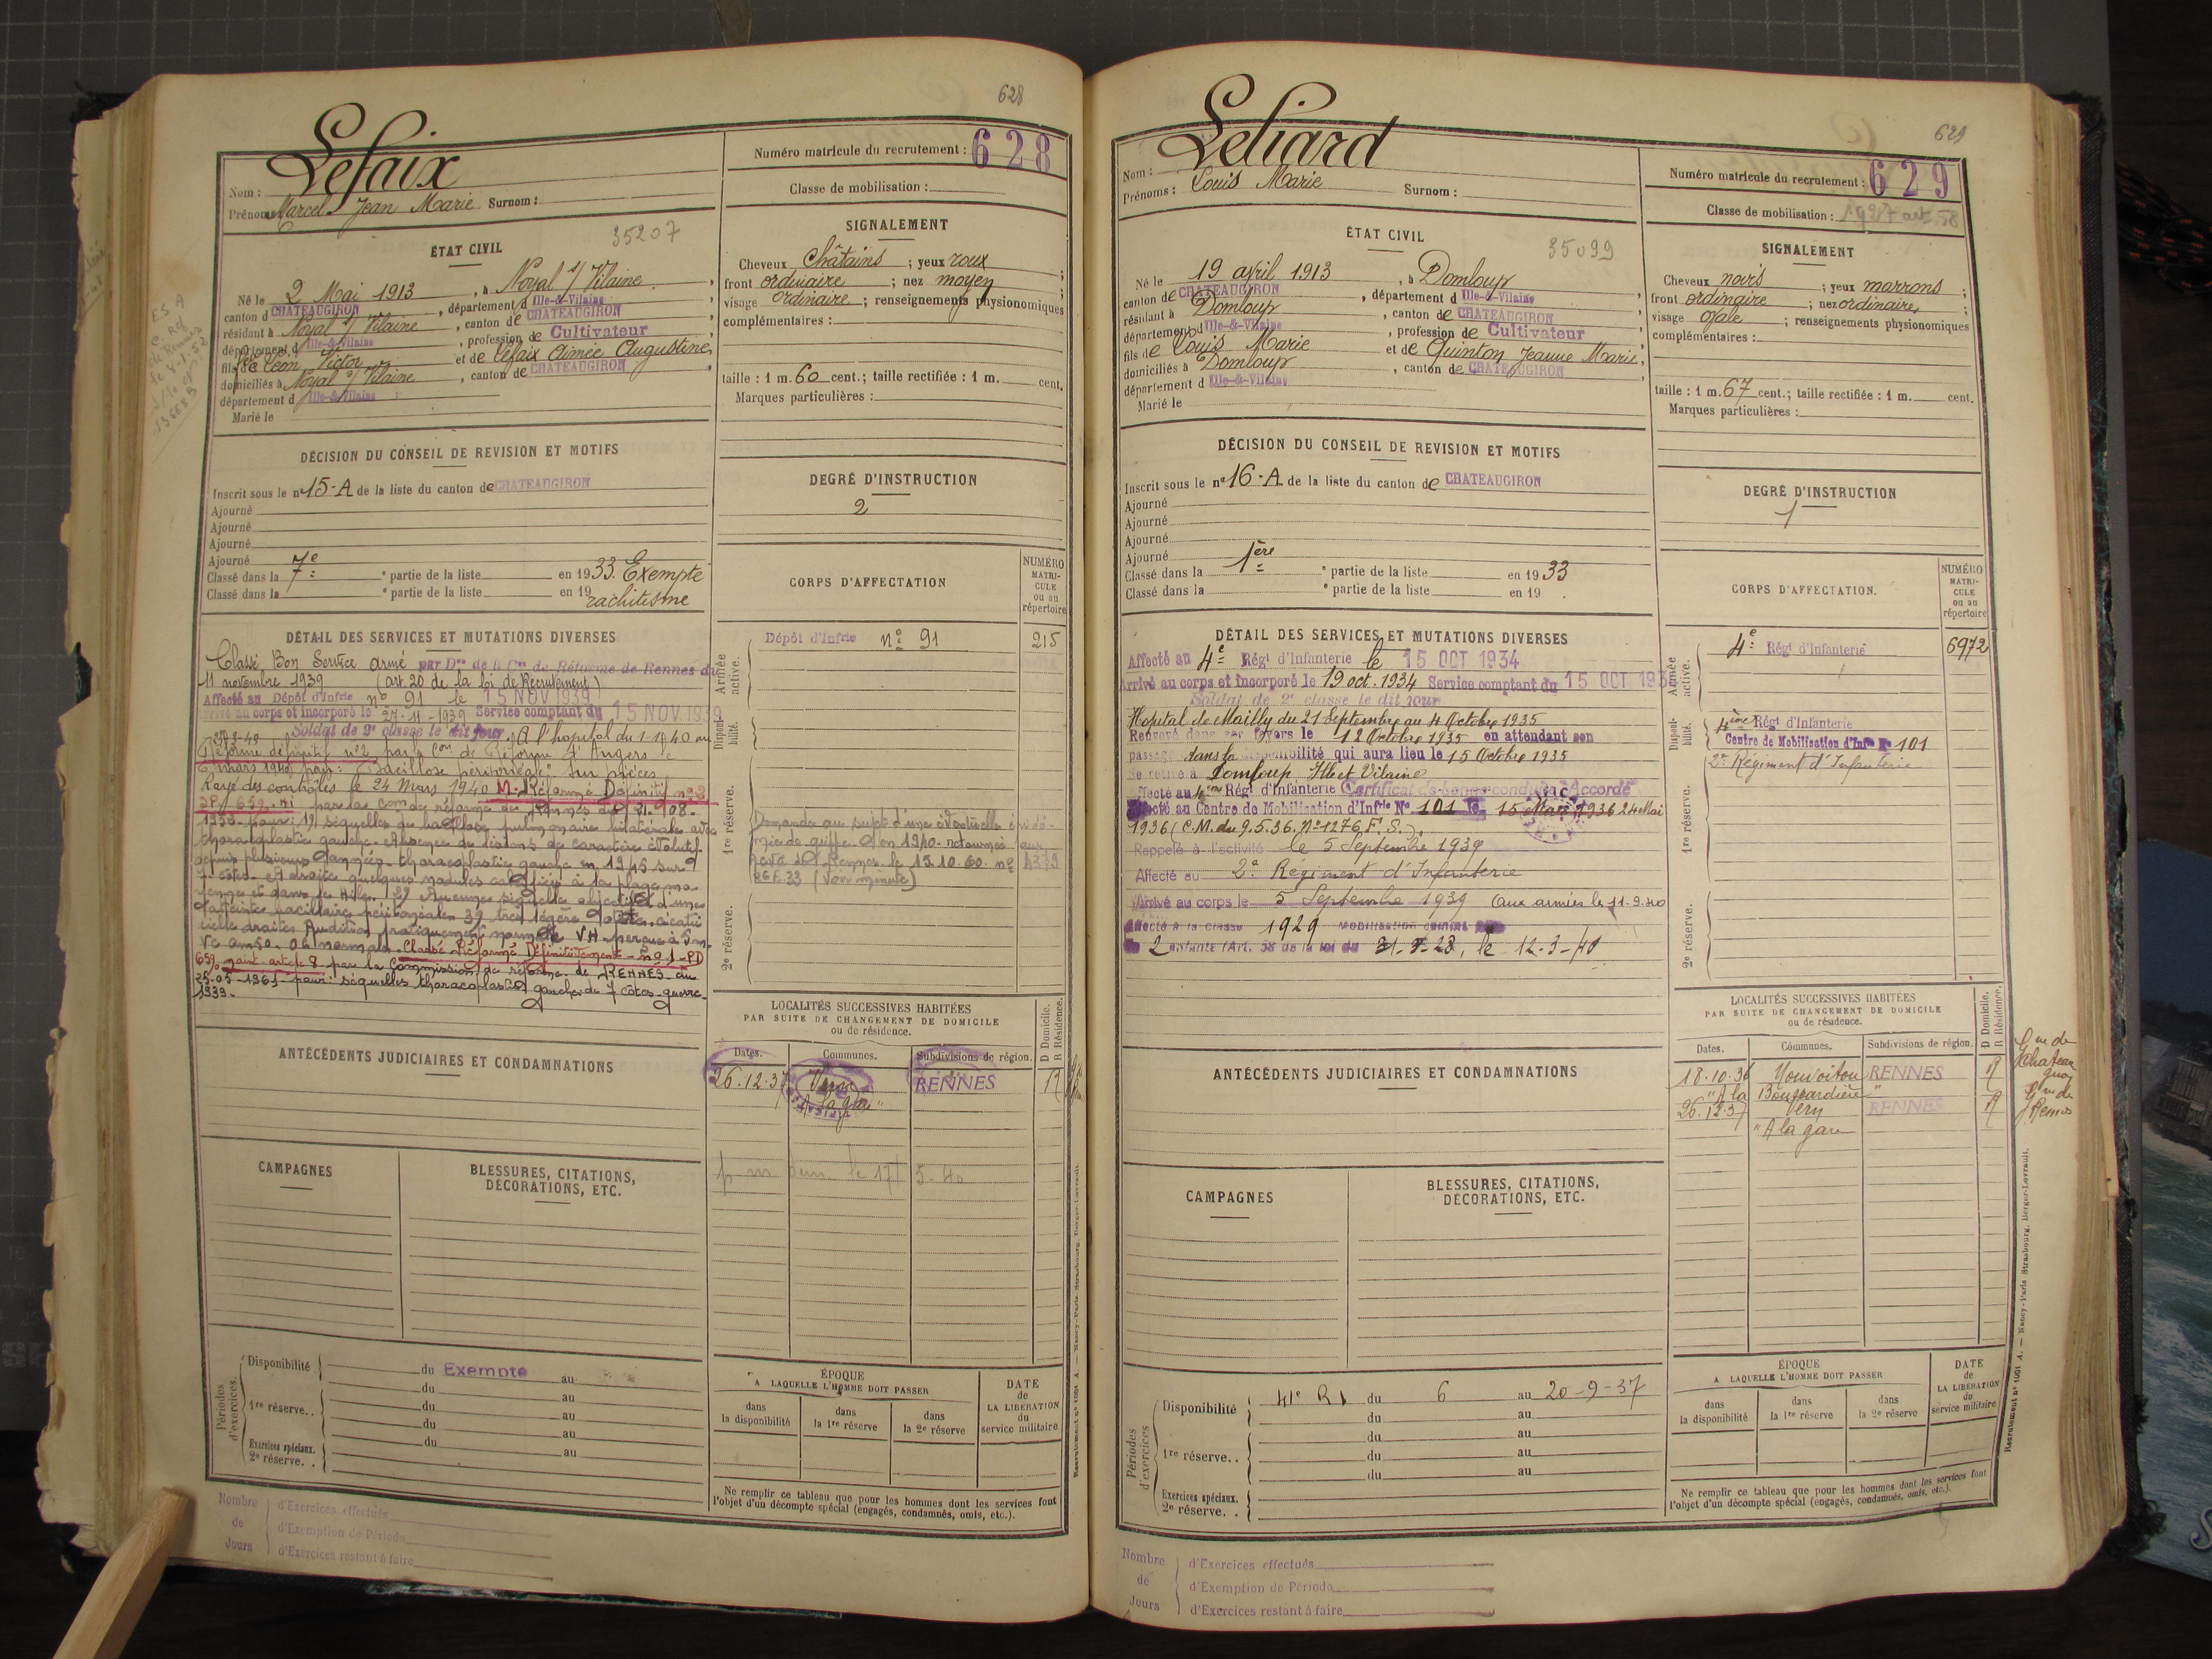 628
Lefaix
Nom :
Prénoms : Marcel Jean Marie Surnom :
Numéro matricule du recrutement : 628
Classe de mobilisation :
ÉTAT CIVIL
35207
Né le 2 Mai 1913, à Noyal s/ Vilaine,
canton de CHATEAUGIRON, département d Ille-&-Vilaine,
résidant à Noyal s/ Vilaine, canton de CHATEAUGIRON
département d Ille-&-Vilaine, profession de Cultivateur
fils de Léon, Victor et de Lefaix Aimée Augustine,
domiciliés à Noyal s/ Vilaine, canton de CHATEAUGIRON
département d Ille-&-Vilaine
Marié le
SIGNALEMENT
Cheveux Châtains ; yeux roux ;
front ordinaire ; nez moyen ;
visage ordinaire ; renseignements physionomiques
complémentaires :
taille : 1 m. 60 cent.; taille rectifiée : 1 m. cent.
Marques particulières :
DÉCISION DU CONSEIL DE REVISION ET MOTIFS
Inscrit sous le n° 15-A de la liste du canton de CHATEAUGIRON
Ajourné
Ajourné
Ajourné
Ajourné
Classé dans la 7e partie de la liste en 1933. Exempté
Classé dans la e partie de la liste en 19 rachitisme
DEGRÉ D'INSTRUCTION
2
CORPS D'AFFECTATION
NUMÉRO MATRICULE ou au répertoire
Armée active.
Dépôt d'Infrie n° 91
215
Disponibilité.
1re réserve.
2e réserve.
DÉTAIL DES SERVICES ET MUTATIONS DIVERSES
Classé Bon Service armé par Don de la Con de Réforme de Rennes du
11 novembre 1939 (art 20 de la loi de Recrutement)
Affecté au Dépôt d'Infrie n° 91 le 15 NOV 1939
Arrivé au corps et incorporé le 27-11-1939 Service comptant du 15 NOV 1939
Soldat de 2e classe le dit jour. A l'hopital du 1-1-40 au
Réformé définitif n° 2 par la Con de Réforme d'Angers
mars 1940 pour : Bacillose péritonéale. Sur pièces
Rayé des contrôles le 24 Mars 1940. M. Réformé Définitif n° 2
par la Com de réforme de Rennes du
thoracoplastie gauche absence de lésions de caractère évolutif
depuis plusieurs années. thoracoplastie gauche en 1945 sur
7 côtes. et droite quelques nodules calcifiés à la plage
atteinte bacillaire péritonéale. 3° très légère otite cicatri
cielle droite. Audition pratiquement normale VH perçue à 5m
Classé Réformé Définitivement n° 1 - PD
65% maint. article 8 par la Commission de réforme de RENNES du
25-05-1961 pour : séquelles thoracoplastie gauche de 7 côtes guerre
1939.
Demande au sujet d'une éventuelle épidé-
mie de griffe en 1940. retournée aux
le 15.10.60. n° 4379
(Voir minute)
LOCALITÉS SUCCESSIVES HABITÉES
PAR SUITE DE CHANGEMENT DE DOMICILE
ou de résidence.
D Domicile. R Résidence.
Dates. Communes. Subdivisions de région.
26.12.37 Vern RENNES R
"A la gare"
5-40
ANTÉCÉDENTS JUDICIAIRES ET CONDAMNATIONS
CAMPAGNES
BLESSURES, CITATIONS,
DÉCORATIONS, ETC.
Périodes d'exercices.
Disponibilité du Exempté au
du au
1re réserve.. du au
du au
Exercices spéciaux. du au
2e réserve. .
ÉPOQUE
A LAQUELLE L'HOMME DOIT PASSER
dans la disponibilité
dans la 1re réserve
dans la 2e réserve
DATE de LA LIBÉRATION du service militaire
Ne remplir ce tableau que pour les hommes dont les services font
l'objet d'un décompte spécial (engagés, condamnés, omis, etc.).
Nombre de Jours
d'Exercices effectués
d'Exemption de Période
d'Exercices restant à faire
629
Leliard
Nom :
Prénoms : Louis Marie Surnom :
Numéro matricule du recrutement : 629
Classe de mobilisation : 1927 art. 58
ÉTAT CIVIL
35099
Né le 19 avril 1913, à Domloup,
canton de CHATEAUGIRON, département d Ille-&-Vilaine,
résidant à Domloup, canton de CHATEAUGIRON
département d Ille-&-Vilaine, profession de Cultivateur
fils de Louis Marie et de Quinton Jeanne Marie,
domiciliés à Domloup, canton de CHATEAUGIRON
département d Ille-&-Vilaine
Marié le
SIGNALEMENT
Cheveux noirs ; yeux marrons ;
front ordinaire ; nez ordinaire,
visage ovale ; renseignements physionomiques
complémentaires :
taille : 1 m. 67 cent.; taille rectifiée : 1 m. cent.
Marques particulières :
DÉCISION DU CONSEIL DE REVISION ET MOTIFS
Inscrit sous le n° 16-A de la liste du canton de CHATEAUGIRON
Ajourné
Ajourné
Ajourné
Ajourné
Classé dans la 1ère partie de la liste en 1933
Classé dans la e partie de la liste en 19
DEGRÉ D'INSTRUCTION
1
CORPS D'AFFECTATION.
NUMÉRO MATRICULE ou au répertoire
Armée active.
4e Régt d'Infanterie
6972
Disponibilité.
4ème Régt d'Infanterie
Centre de Mobilisation d'Infie N° 101
1re réserve.
2e Régiment d'Infanterie
2e réserve.
DÉTAIL DES SERVICES ET MUTATIONS DIVERSES
Affecté au 4e Régt d'Infanterie le 15 OCT 1934
Arrivé au corps et incorporé le 19 oct. 1934 Service comptant du 15 OCT 193
Soldat de 2e classe le dit jour
Hopital de Mailly du 21 Septembre au 4 Octobre 1935
Renvoyé dans ses foyers le 12 Octobre 1935 en attendant son
passage dans la disponibilité qui aura lieu le 15 Octobre 1935
Se retire à Domloup Ille et Vilaine
Affecté au 4ème Régt d'Infanterie Certificat de bonne conduite Accordé
Affecté au Centre de Mobilisation d'Infrie N° 101 le 15 Mars 1936 24 Mai
1936 (C.M. du 9.5.36. N° 1276 F.S.)
Rappelé à l'activité le 5 Septembre 1939
Affecté au 2e Régiment d'Infanterie
Arrivé au corps le 5 Septembre 1939 Aux armées le 11-9-40
Affecté à la classe 1929 MOBILISATION comme
2 enfants (Art. 58 de la loi du 31-3-28, le 12-3-40
LOCALITÉS SUCCESSIVES HABITÉES
PAR SUITE DE CHANGEMENT DE DOMICILE
ou de résidence.
D Domicile. R Résidence.
Dates. Communes. Subdivisions de région.
18.10.36 Nouvoitou RENNES R
"A la
26.12.37 Vern RENNES R
"A la gare
ANTÉCÉDENTS JUDICIAIRES ET CONDAMNATIONS
CAMPAGNES
BLESSURES, CITATIONS,
DÉCORATIONS, ETC.
Périodes d'exercices
Disponibilité 41e RI du 6 au 20-9-37
du au
1re réserve.. du au
du au
du au
Exercices spéciaux.
2e réserve. .
ÉPOQUE
A LAQUELLE L'HOMME DOIT PASSER
dans la disponibilité
dans la 1re réserve
dans la 2e réserve
DATE de LA LIBÉRATION du service militaire
Ne remplir ce tableau que pour les hommes dont les services font
l'objet d'un décompte spécial (engagés, condamnés, omis, etc.).
Recrutement n° 1001 A. — Nancy-Paris-Strasbourg, Berger-Levrault.
Nombre de Jours
d'Exercices effectués
d'Exemption de Période
d'Exercices restant à faire